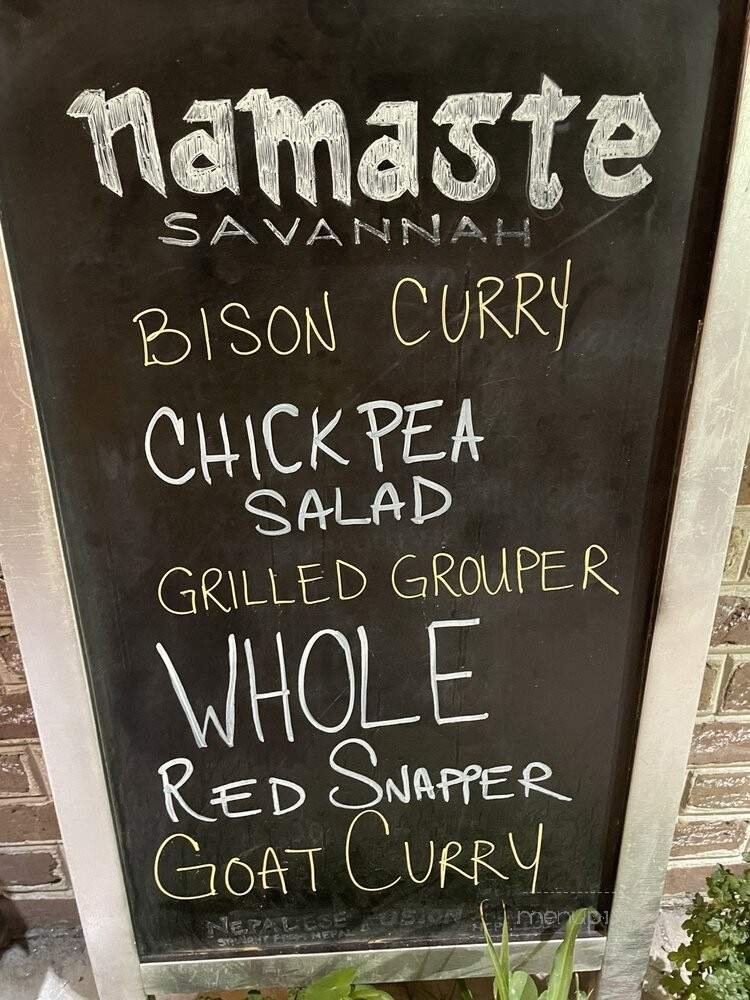 namaste
SAVANNAH
BISON CURRY
CHICKPEA
SALAD
GRILLED GROUPER
WHOLE
RED SNAPPER
GOAT CURRY
NEPALESE FUSION
menupix